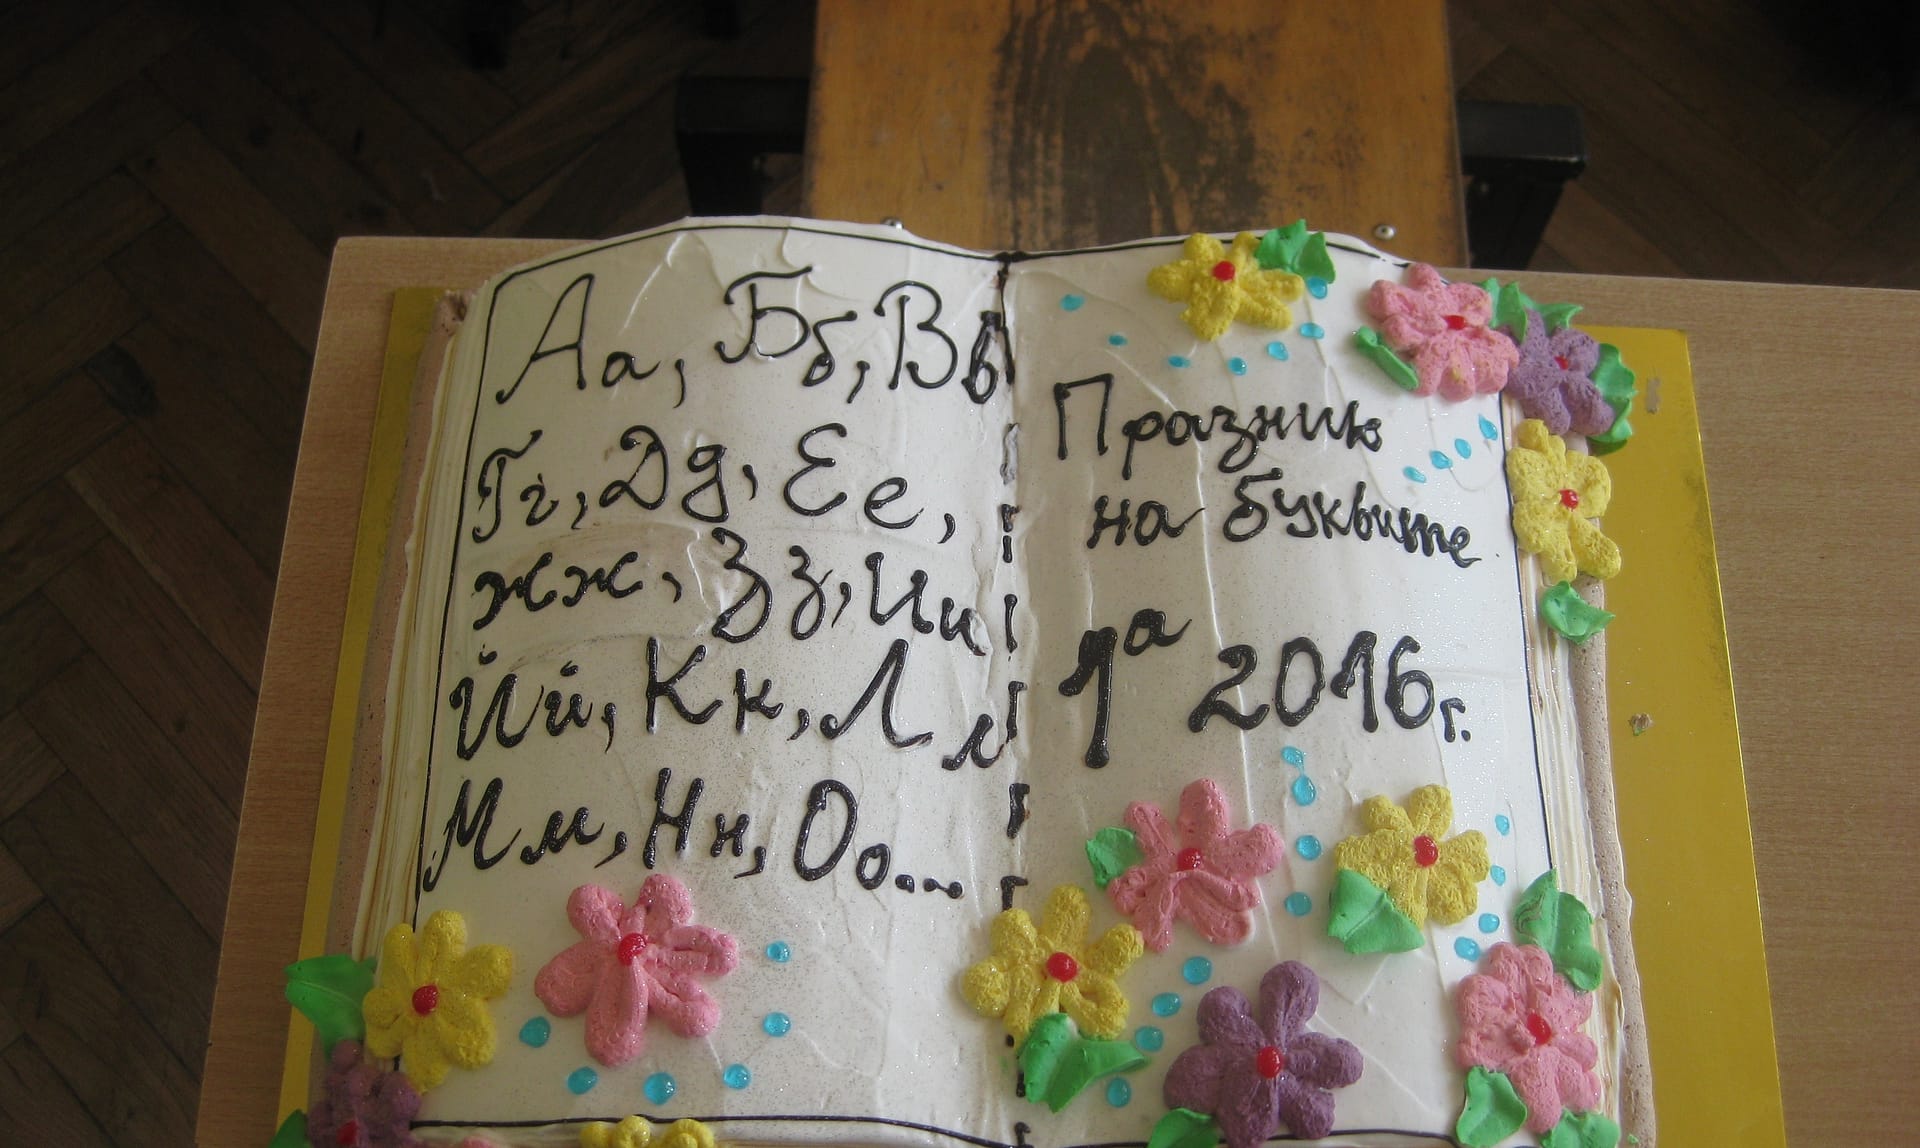 Аа, Бб, Вв
Гг, Дд, Ее,
жж, Зз, Ии
Йй, Кк, Лл
Мм, Нн, Оо...
Празник
на буквите
1а 2016г.